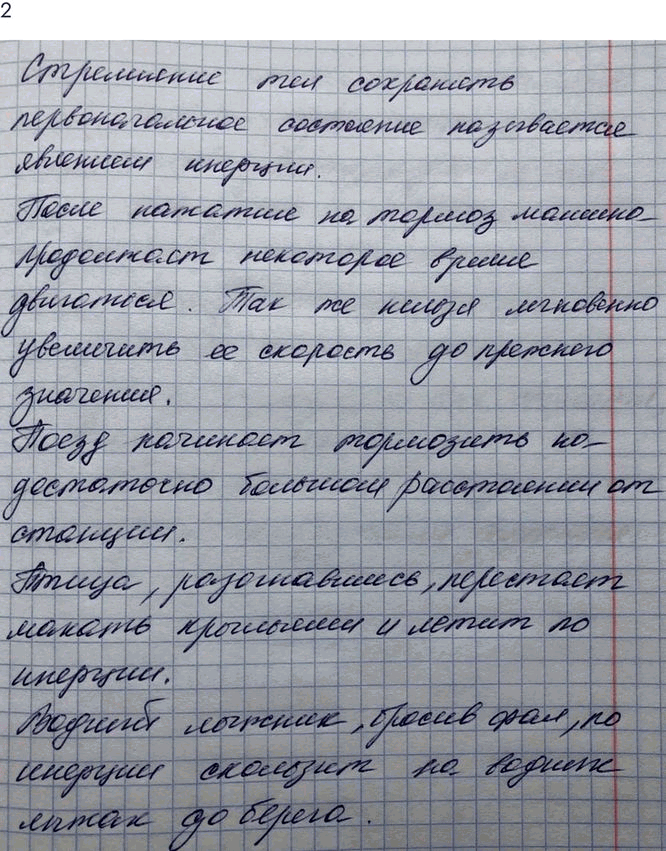 2
Стремление тел сохранять
первоначальное состояние называется
явлением инерции.
После нажатие на тормоз машина
продолжает некоторое время
двигаться. Так же нельзя мгновенно
увеличить ее скорость до прежнего
значения.
Поезд начинает тормозить на
достаточно большом расстоянии от
станции.
Птица, разогнавшись, перестает
махать крыльями и летит по
инерции.
Водный лыжник, бросив фал, по
инерции скользит на водных
лыжах до берега.